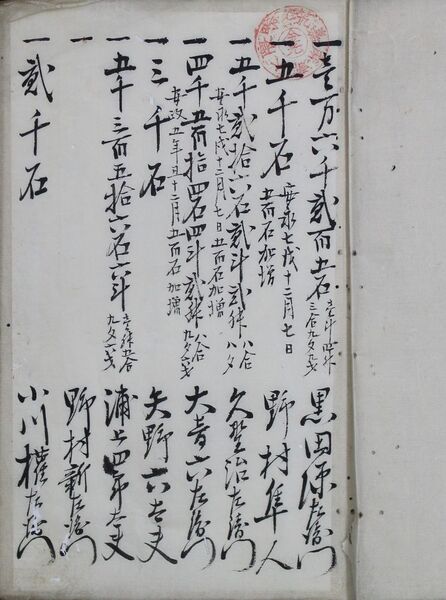 一壱万六千弐百五石 壱斗四升三合九夕九才 黒田源左衛門
一五千石 安永七戌十二月七日五百石加増 野村隼人
一五千弐拾六石弐斗弐升 八合八夕 久野治左衛門
安永七戌十二月七日五百石加増
一四千五百拾四石四斗弐升 八合九夕六才 大音六左衛門
安政五年十二月五百石加増
一三千石 矢野六太夫
一五千三百五拾六石六斗 壱升五合九夕一才 浦上四郎太夫
一 野村新右衛門
一弐千石 小川権左衛門